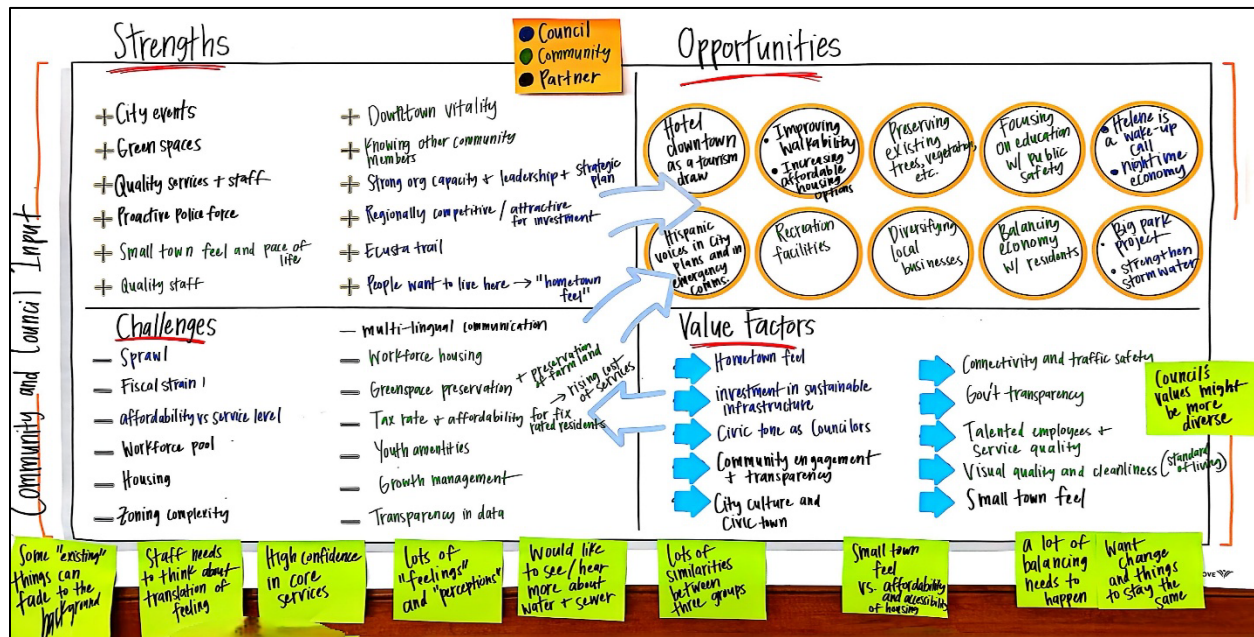 Community and Council Input
Strengths
+ City events
+ Green spaces
+ Quality services + staff
+ Proactive Police force
+ Small town feel and pace of
life
+ Quality staff
+ Downtown vitality
+ Knowing other community
members
+ Strong org capacity + leadership + strategic
plan
+ Regionally competitive / attractive
for investment
+ Ecusta trail
+ People want to live here → "hometown
feel"
Council
Community
Partner
Opportunities
Hotel
downtown
as a tourism
draw
• Improving
walkability
• Increasing
affordable
housing
options
Preserving
existing
trees, vegetation,
etc.
Focusing
on education
w/ public
safety
• Helene is
a wake-up
call
• nighttime
economy
Hispanic
voices in City
plans and in
emergency
comms.
Recreation
facilities
Diversifying
local
businesses
Balancing
economy
w/ residents
• Big park
project
• strengthen
stormwater
Challenges
— Sprawl
— Fiscal strain
— affordability vs service level
— Workforce pool
— Housing
— Zoning complexity
— multi-lingual communication
— Workforce housing
— Greenspace preservation
+ preservation
of farm land
— Tax rate + affordability for fix
rated residents
→ rising cost
of services
— Youth amentities
— Growth management
— Transparency in data
Value Factors
Hometown feel
investment in sustainable
infrastructure
Civic tone as Councilors
Community engagement
+ transparency
City culture and
Civic town
Connectivity and traffic safety
Gov't transparency
Talented employees +
service quality
Visual quality and cleanliness (standard
of living)
Small town feel
Council's
values might
be more
diverse
Some "existing"
things can
fade to the
background
Staff needs
to think about
translation of
feeling
High confidence
in core
services
Lots of
"feelings"
and "perceptions"
Would like
to see/hear
more about
water + sewer
Lots of
similarities
between
three groups
Small town
feel
vs. affordability
and accessibility
of housing
a lot of
balancing
needs to
happen
Want
change
and things
to stay the
same